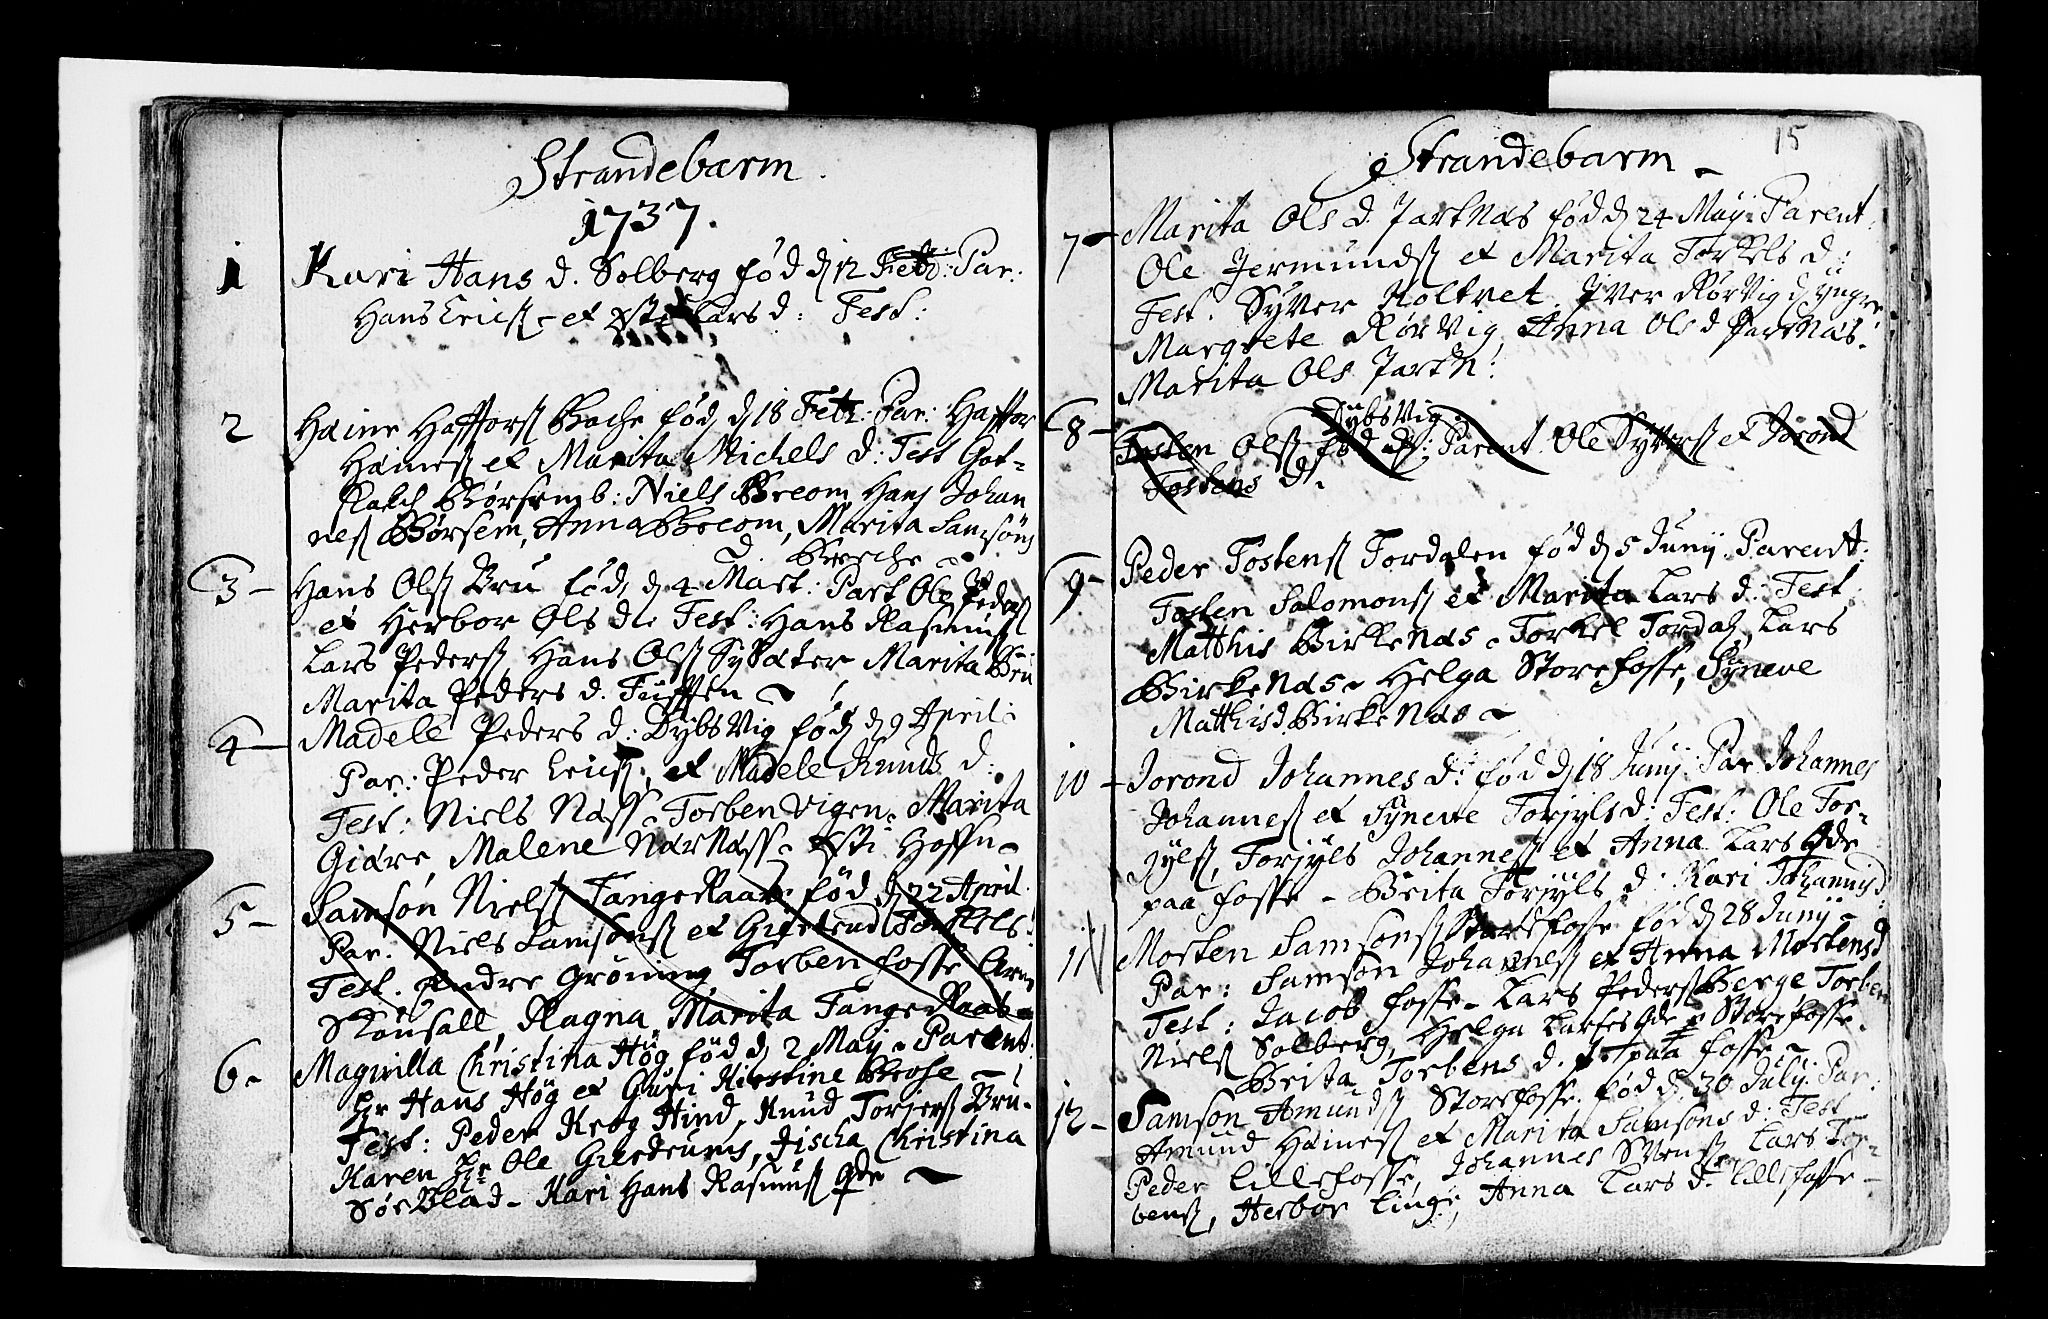 Strandebarm.
1737.
1 Kari Hans d. Solberg fød d 12 Febr: Par:
Hans Erics - et Lars d: Test:
2 Haine Haffors Bache fød d 18 Febr: Par: Haffor
Haines et Marita Michels d: Test Got-
Børsemb: Niels Breom Hans Johan
nes Børsem, Anna Breom, Marita Samsons
d. Berche
3 - Hans Ols Bru fød d 4 Mart: Part Ole Peders
et Herbor Ols d: Test: Hans Rasmus
Lars Peders, Hans Ols Marita Bru
Marita Peders d. Tuften
4 - Madele Peders d: Dybsvig fød d 9 April:
Par: Peder Erics, et Madele Knuds d:
Test: Niels Næss - Torben Vigen. Marita
Giære, Malene Nærnæss - Hofsn
5 - Samson Niels Tangeraas fød d 22 April.
Par. Niels Samsons et Giertrud Torkels
Test. Andre Grøning Torben fosse
Skonsall, Ragna, Marita Tangeraas
6 - Magnilla Christina Høg fød d 2 Maij - Parent:
Hr Hans Høg et Guri Kirstine Brose -
Test: Peder Krog Hind, Knud Torjers Bru.
Karen Hr Ole Gierdrums, Zischa Christina
Sørblad - Kari Hans Rasmus Qde
15
Strandebarm -
7 - Marita Ols d. Jarknæs fød d 24 Maij Parent
Ole Jermunds et Marita Torkels d:
Test. Syver Holtvet. Iver Rørvig d yngre
Margrete Rørvig, Anna Ols d Jarknæs.
Marita Ols Jarkn:
Dybsvig
8 - Tosten Ols fød d: Parent Ole Syvers et Jorond
Tostens d.
9 - Peder Tostens Tordalen fød d 5 Junij Parent:
Tosten Salomons et Marita Lars d: Test
Matthis Birkenæs - Torkel Tordal, Lars
Birkenæs - Helga Storefosse, Syneve
Matthisd Birkenæs -
10 - Jorond Johannes d: fød d 18 Junij Par Johannes
Johannes et Synerve Torjyls d: Test: Ole Tor-
jyls, Torjyls Johannes et Anna Lars Qde
paa fosse - Brita Torjyls d: Kari Johannisd
11 Morten Samsons Storefosse fød d 28 Junij -
Par: Samson Johannes et Anna Mortensd
Test: Jacob fosse - Lars Peders Berge Torben
Niels Solberg, Helga Larses Qde Storefosse.
Brita Torbens d. paa fosse -
12 - Samson Amunds Storefosse. fød d 30 July: Par:
Amund Haines et Marita Samsons d: Test
Peder Lillefosse, Johannes Svens Lars Tor-
bens, Herbor Linge, Anna Lars d. Lillefosse -